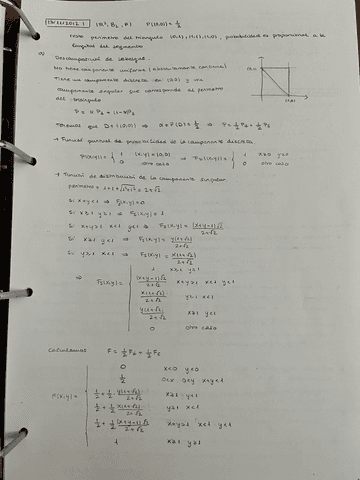 13/12/2012 1 (ℝ², B₂, P) P(10,0)} = ½
resto perímetro del triángulo (0,1), (1,1), (1,0), probabilidad es proporcional a la
longitud del segmento
a) Descomposición de Lebesgue.
No tiene componente uniforme (absolutamente continua)
Tiene una componente discreta en (0,0) y una
componente singular que corresponde al perímetro
del triángulo
P = α Pd + (1-α)Ps
Tenemos que D = {(0,0)} ⇒ α = P(D) = ½ ⇒ P = ½ Pd + ½ Ps
→ Función puntual de probabilidad de la componente discreta
P(x,y) = { 1 (x,y) = (0,0) ⇒ Fd(x,y) = { 1 x≥0 y≥0
0 otro caso 0 otro caso
→ Función de distribución de la componente singular.
perímetro = 1+1+√1²+1² = 2+√2
Si x+y<1 ⇒ Fs(x,y) = 0
Si x≥1 y≥1 ⇒ Fs(x,y) = 1
Si x+y≥1 x<1 y<1 ⇒ Fs(x,y) = (x+y-1)√2 / 2+√2
Si x≥1 y<1 ⇒ Fs(x,y) = y(1+√2) / 2+√2
Si y≥1 x<1 ⇒ Fs(x,y) = x(1+√2) / 2+√2
⇒ Fs(x,y) = { 1 x≥1 y≥1
(x+y-1)√2 / 2+√2 x+y≥1 x<1 y<1
x(1+√2) / 2+√2 y≥1 x<1
y(1+√2) / 2+√2 x≥1 y<1
0 otro caso
Calculamos F = ½ Fd + ½ Fs
F(x,y) = { 0 x<0 y<0
½ 0≤x 0≤y x+y<1
½ + ½ y(1+√2) / 2+√2 x≥1 y<1
½ + ½ x(1+√2) / 2+√2 y≥1 x<1
½ + ½ (x+y-1)√2 / 2+√2 x+y≥1 x<1 y<1
1 x≥1 y≥1